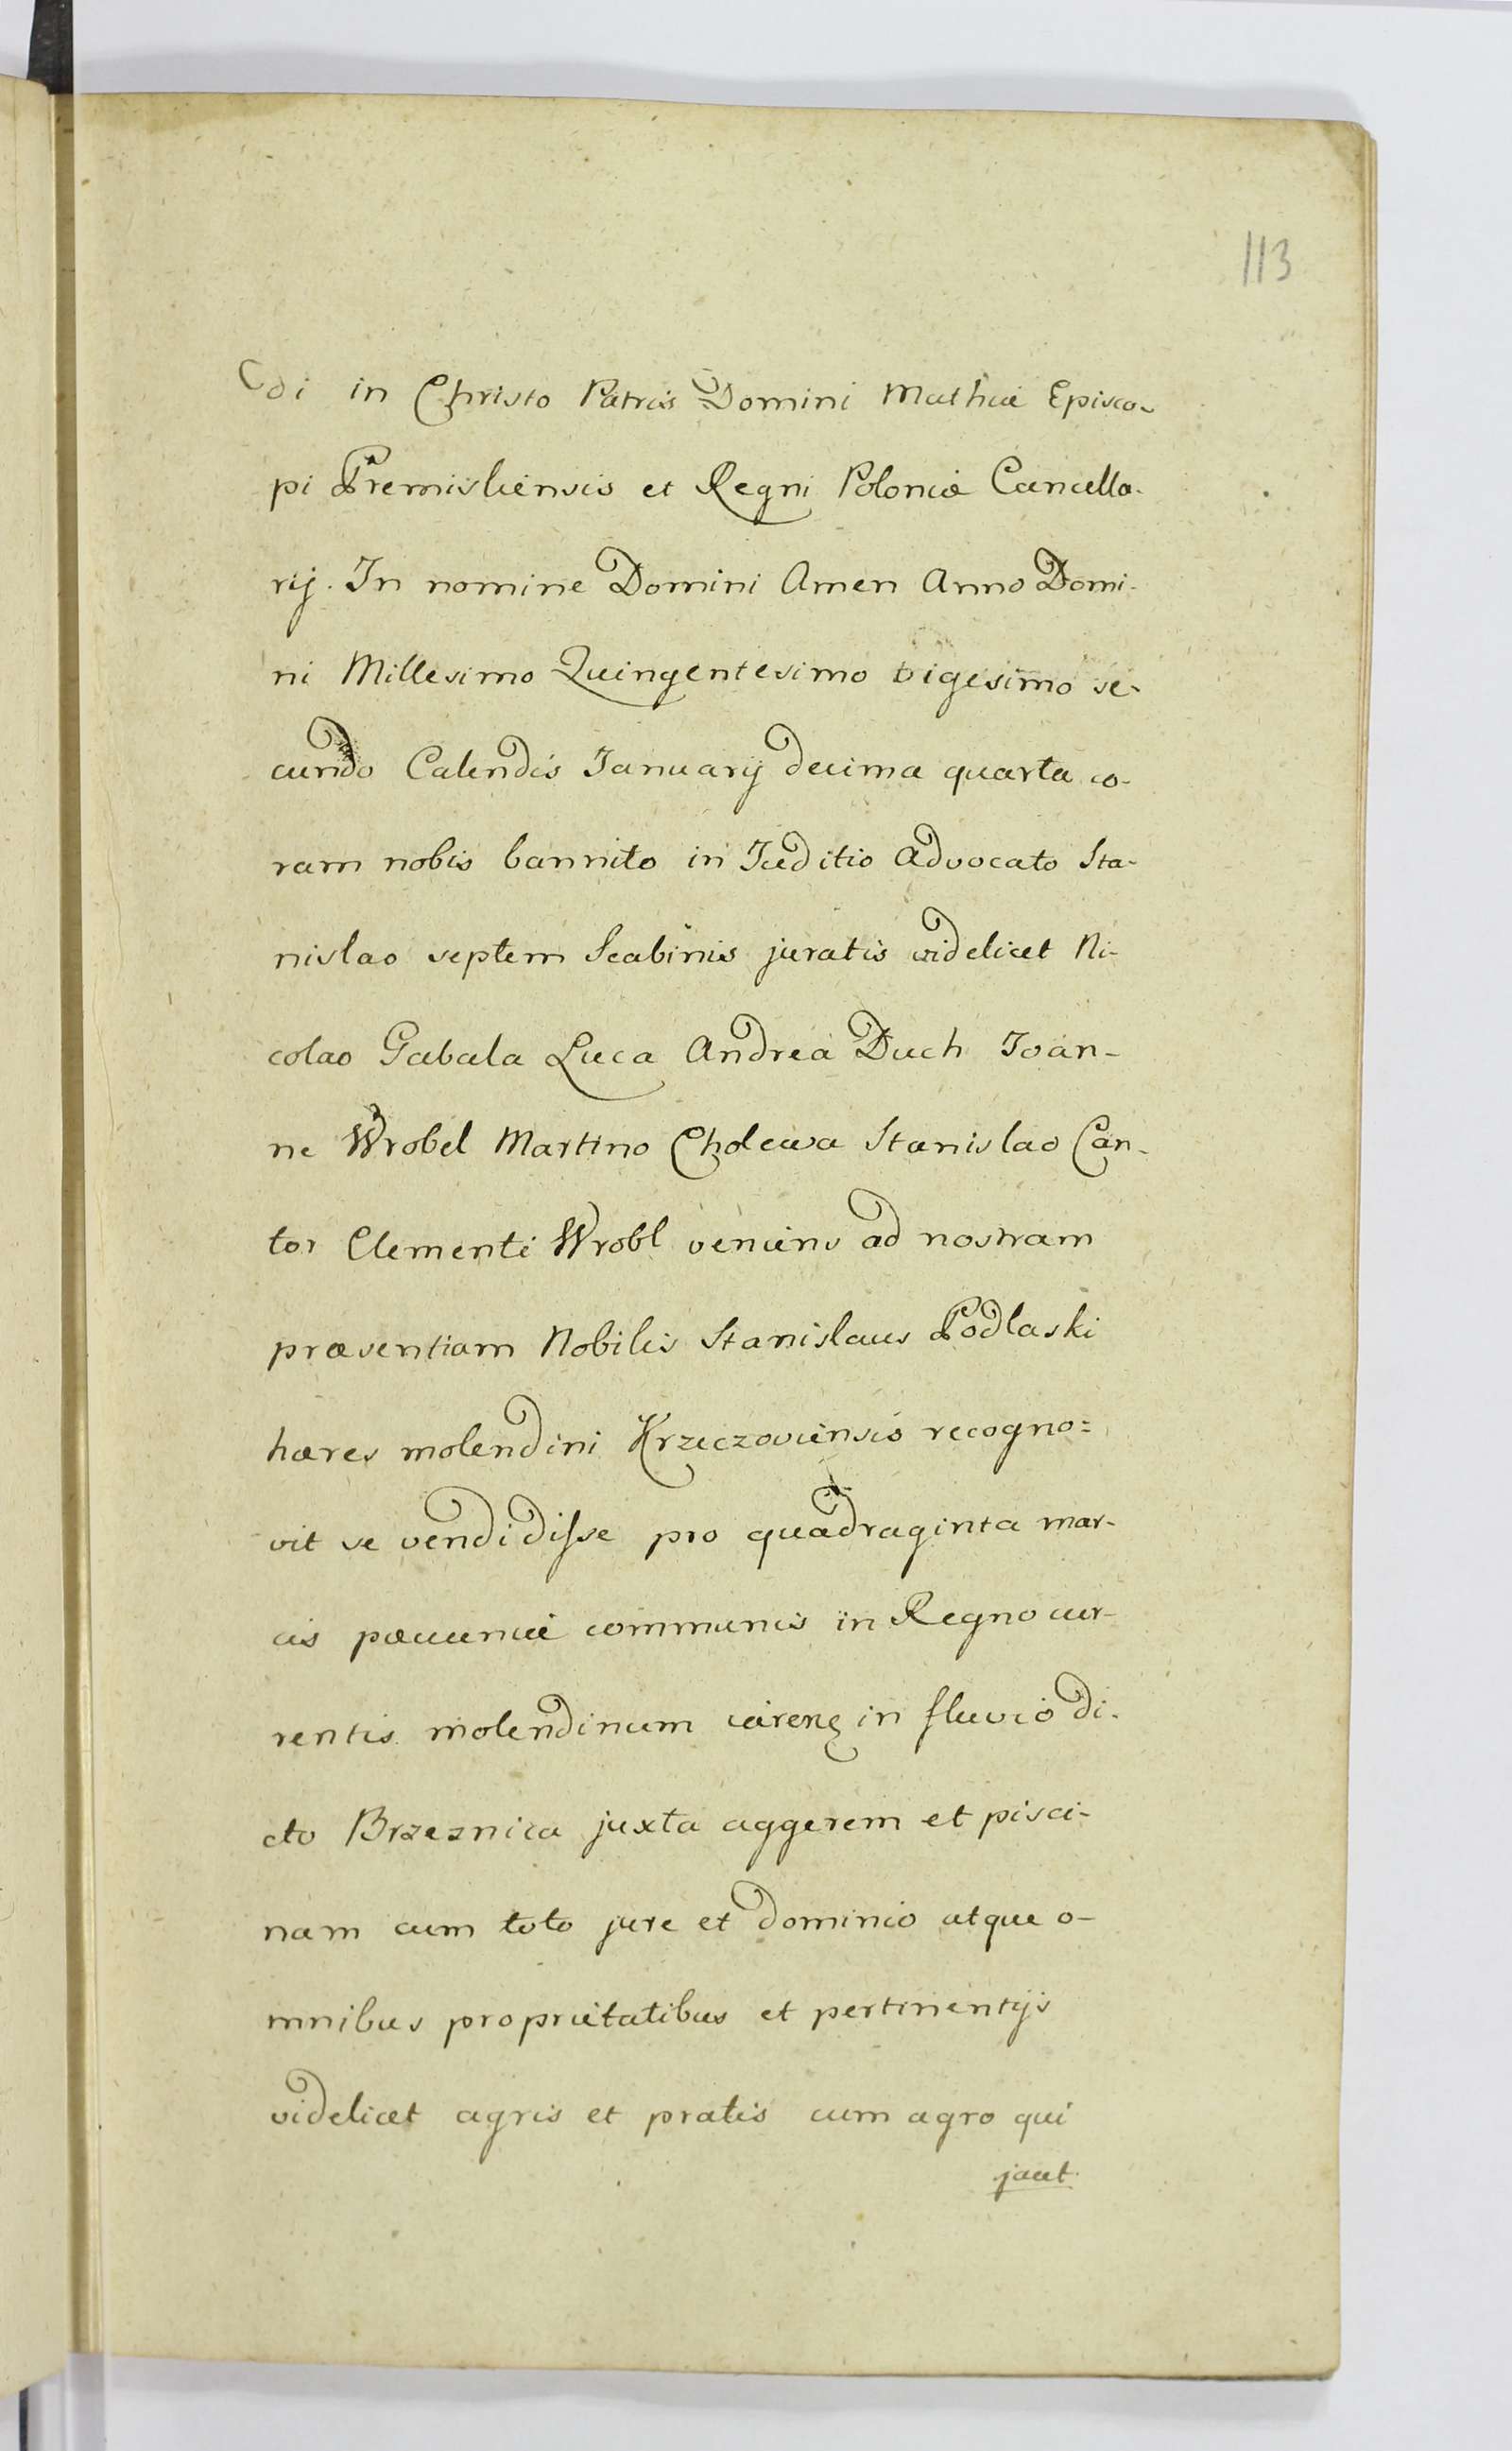 113
di in Christo Patris Domini Mathiæ Episco-
pi Premisliensis et Regni Poloniæ Cancella-
rij. In nomine Domini Amen Anno Domi-
ni Millesimo Quingentesimo vigesimo se-
cundo Calendis Ianuarij decima quarta co-
ram nobis bannito in Iuditio Advocato Sta-
nislao septem Scabinis juratis videlicet Ni-
colao Gabala Luca Andrea Duch Ioan-
ne Wrobel Martino Cholewa Stanislao Can-
tor Clementi Wrobl veniens ad nostram
præsentiam Nobilis Stanislaus Podlaski
hæres molendini Krzeczoviensis recogno=
vit se vendidisse pro quadraginta mar-
cis pæcuniæ communis in Regno cur-
rentis molendinum in fluvio di-
cto Brzeznica juxta aggerem et pisci-
nam cum toto jure et dominio atque o-
mnibus proprietatibus et pertinentijs
videlicet agris et pratis cum agro qui
jacet